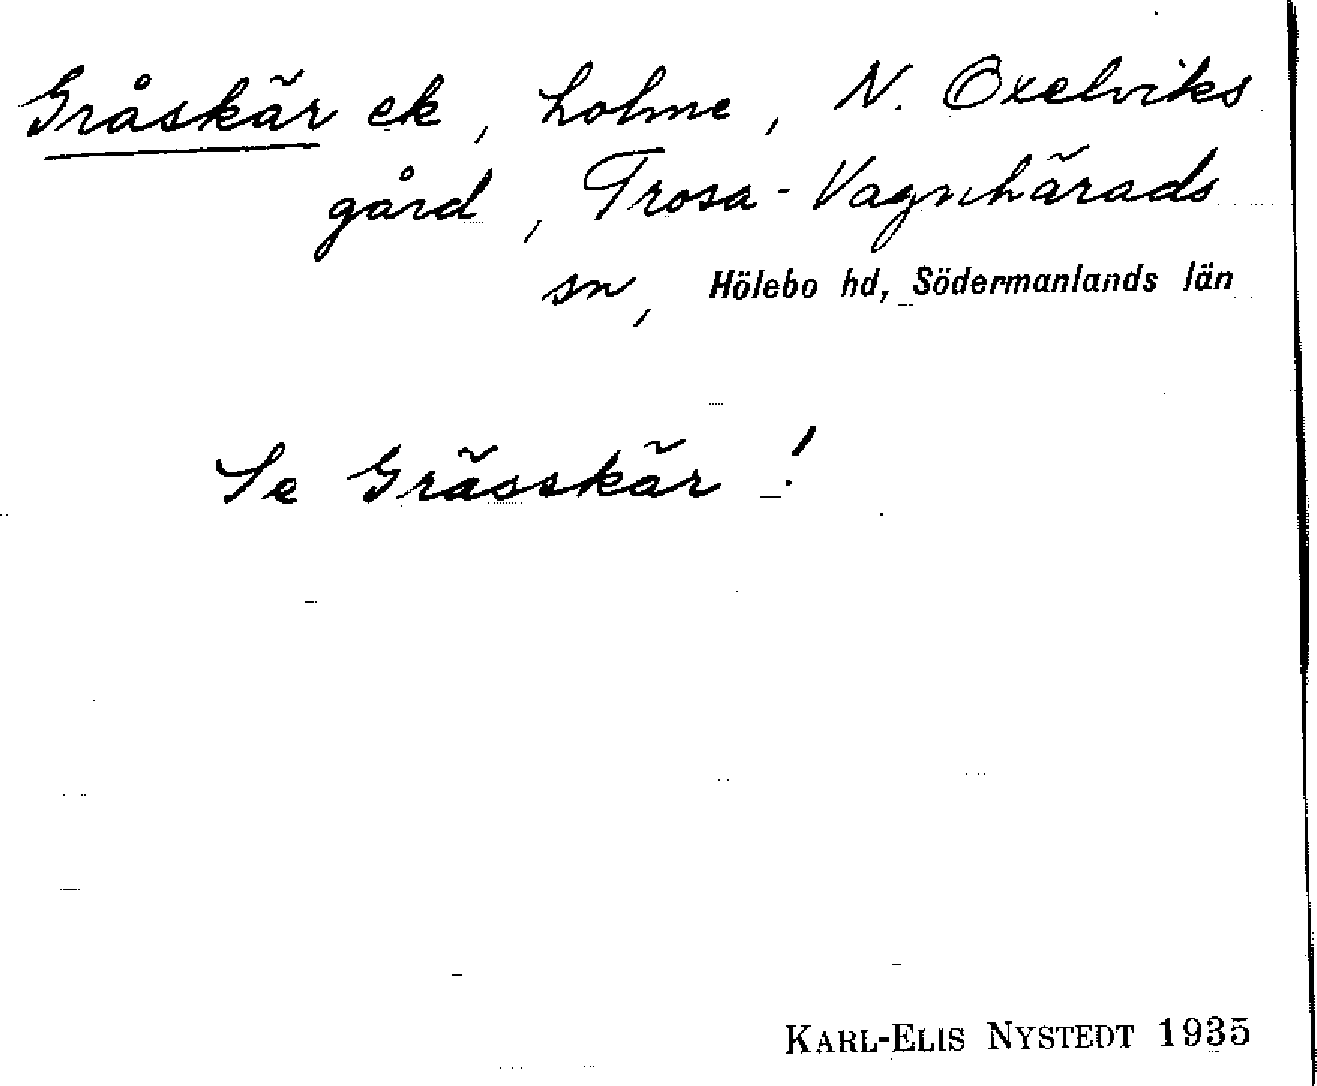 Gråskär ek, holme, N. Oxelviks
gård, Trosa-Vagnhärads
sn, Hölebo hd, Södermanlands län
Se Grässkär!
KARL-ELIS NYSTEDT 1935